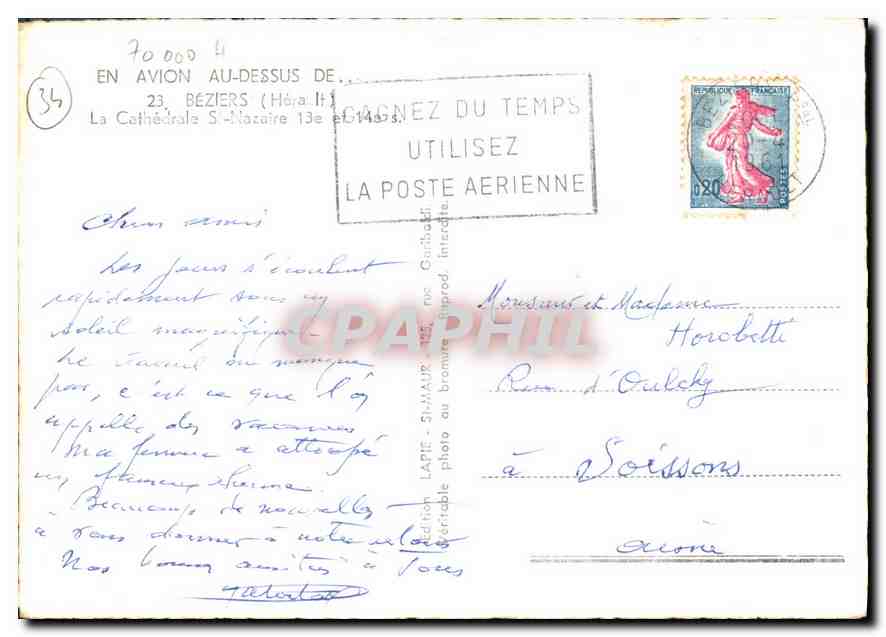 70000 H
34
EN AVION AU-DESSUS DE...
23. BÉZIERS (Hérault)
La Cathédrale St-Nazaire 13e et 14e s.
GAGNEZ DU TEMPS
UTILISEZ
LA POSTE AERIENNE
REPUBLIQUE FRANÇAISE
0,20
POSTES
1961
Chers amis
Les jours s'écoulent
rapidement sous un
soleil magnifique
Le travail ne manque
pas, c'est ce que l'on
appelle des vacances
Ma femme a attrapé
un fameux rhume.
Beaucoup de nouvelles
à vous donner à notre retour
Nos bonnes amitiés à tous
Edition LAPIE - St-MAUR - 125, rue Garibaldi
Véritable photo au bromure. Reprod. interdite.
Monsieur et Madame
Horobetti
Rue d'Oulchy
à Soissons
Aisne
CPAPHIL